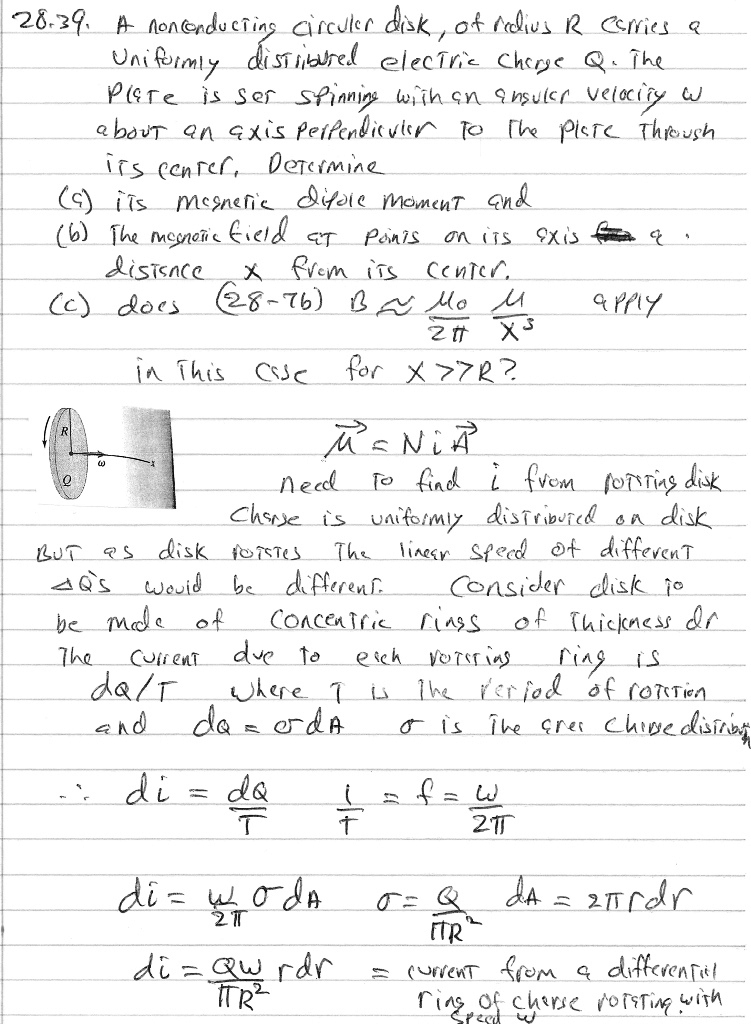 28.39. A nonconducting circular disk, of radius R carries a
Uniformly distributed electric charge Q. The
Plate is set spinning with an angular velocity ω
about an axis perpendicular to the plate through
its center. Determine
(a) its magnetic dipole moment and
(b) The magnetic field at points on its axis a
distance x from its center.
(c) does (28-7b) B ≈ μ₀/2π μ/x³ apply
in this case for x >> R?
R
ω
x
Q
μ⃗ = N i A⃗
need to find i from rotating disk
Charge is uniformly distributed on disk
But as disk rotates the linear speed of different
ΔQ's would be different. Consider disk to
be made of concentric rings of thickness dr
The current due to each rotating ring is
dQ/T where T is the period of rotation
and dQ = σdA σ is the area charge distribution
∴ di = dQ/T 1/T = f = ω/2π
di = ω/2π σdA σ = Q/πR² dA = 2πrdr
di = Qω/πR² rdr = current from a differential
ring of charge rotating with
speed ω